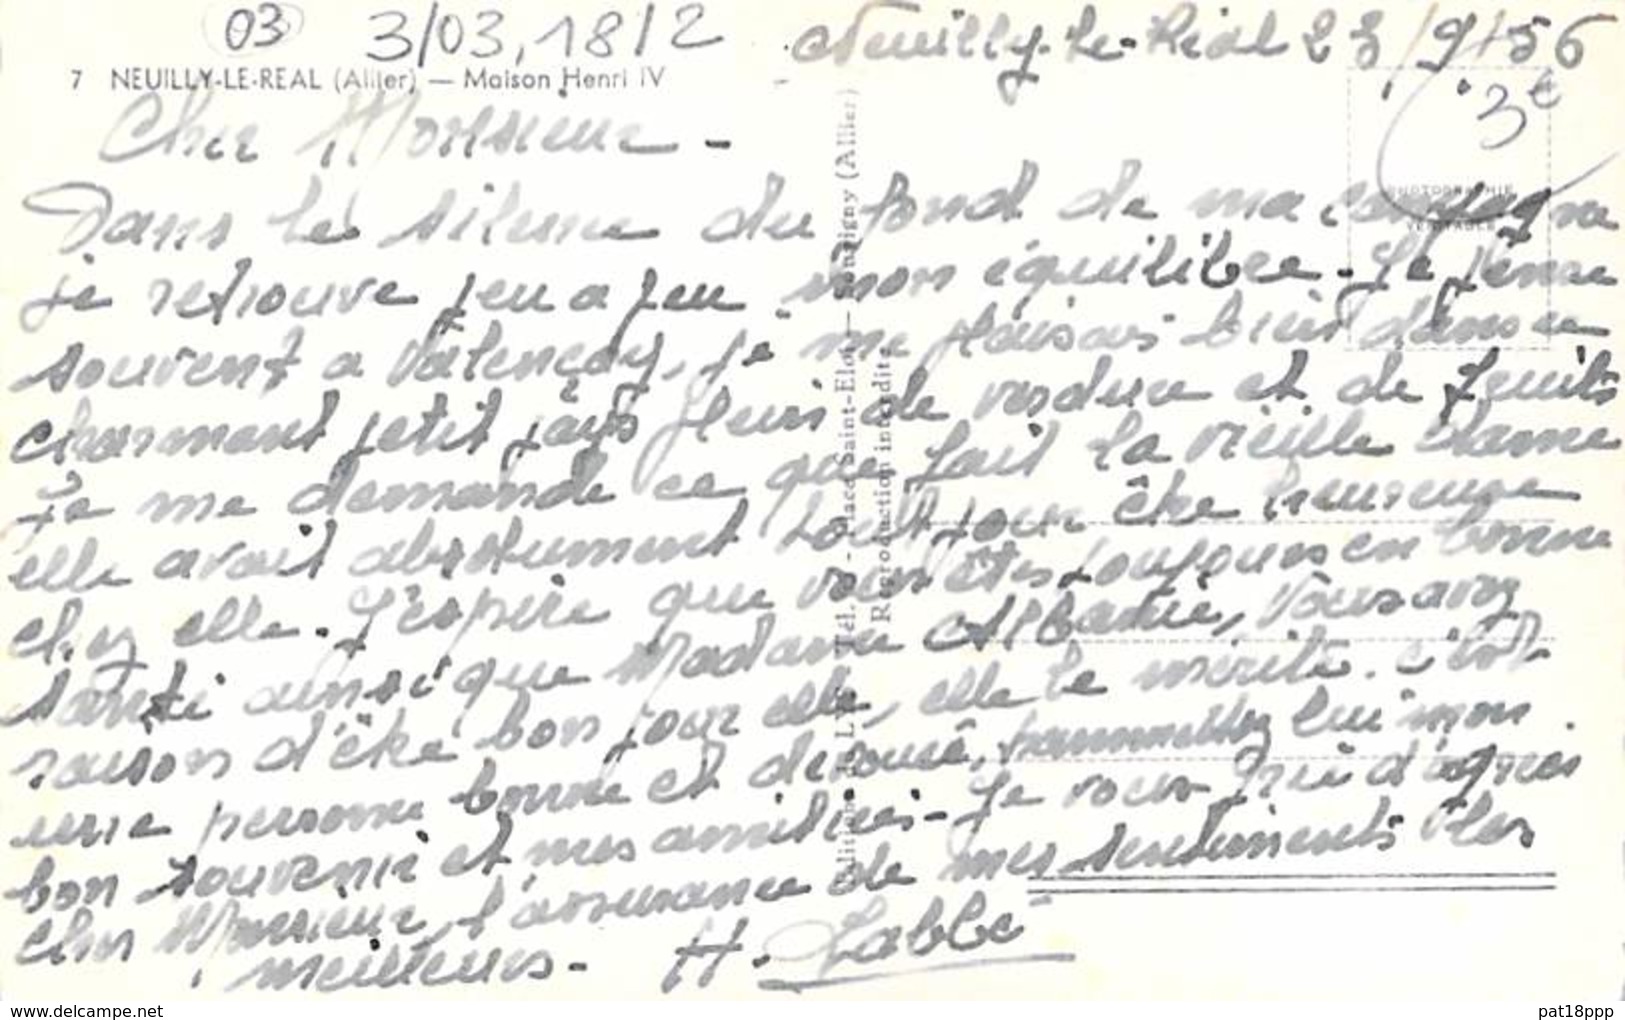 03
3/03,1812
Neuilly-le-Réal 23/9/56
7 NEUILLY-LE-REAL (Allier) — Maison Henri IV
3€
PHOTOGRAPHIE
VERITABLE
Cher Monsieur -
Dans le silence du fond de ma campagne
je retrouve peu a peu mon équilibre - Je pense
souvent a Valençay, je me plaisais bien dans ce
charmant petit pays fleuri de verdure et de fruits
je me demande ce que fait la vieille dame
elle avait absolument tout pour être heureuse
chez elle - J'espère que vous êtes toujours en bonne
santé ainsi que Madame Albanie, Vous avez
raison d'être bon pour elle, elle le mérite. c'est
une personne bonne et dévouée, transmettez lui mon
bon souvenir et mes amitiés - Je vous prie d'agréer
cher Monsieur, l'assurance de mes sentiments les
meilleurs - H. Labbe
Place Saint-Eloi — (Allier)
Reproduction interdite
pat18ppp